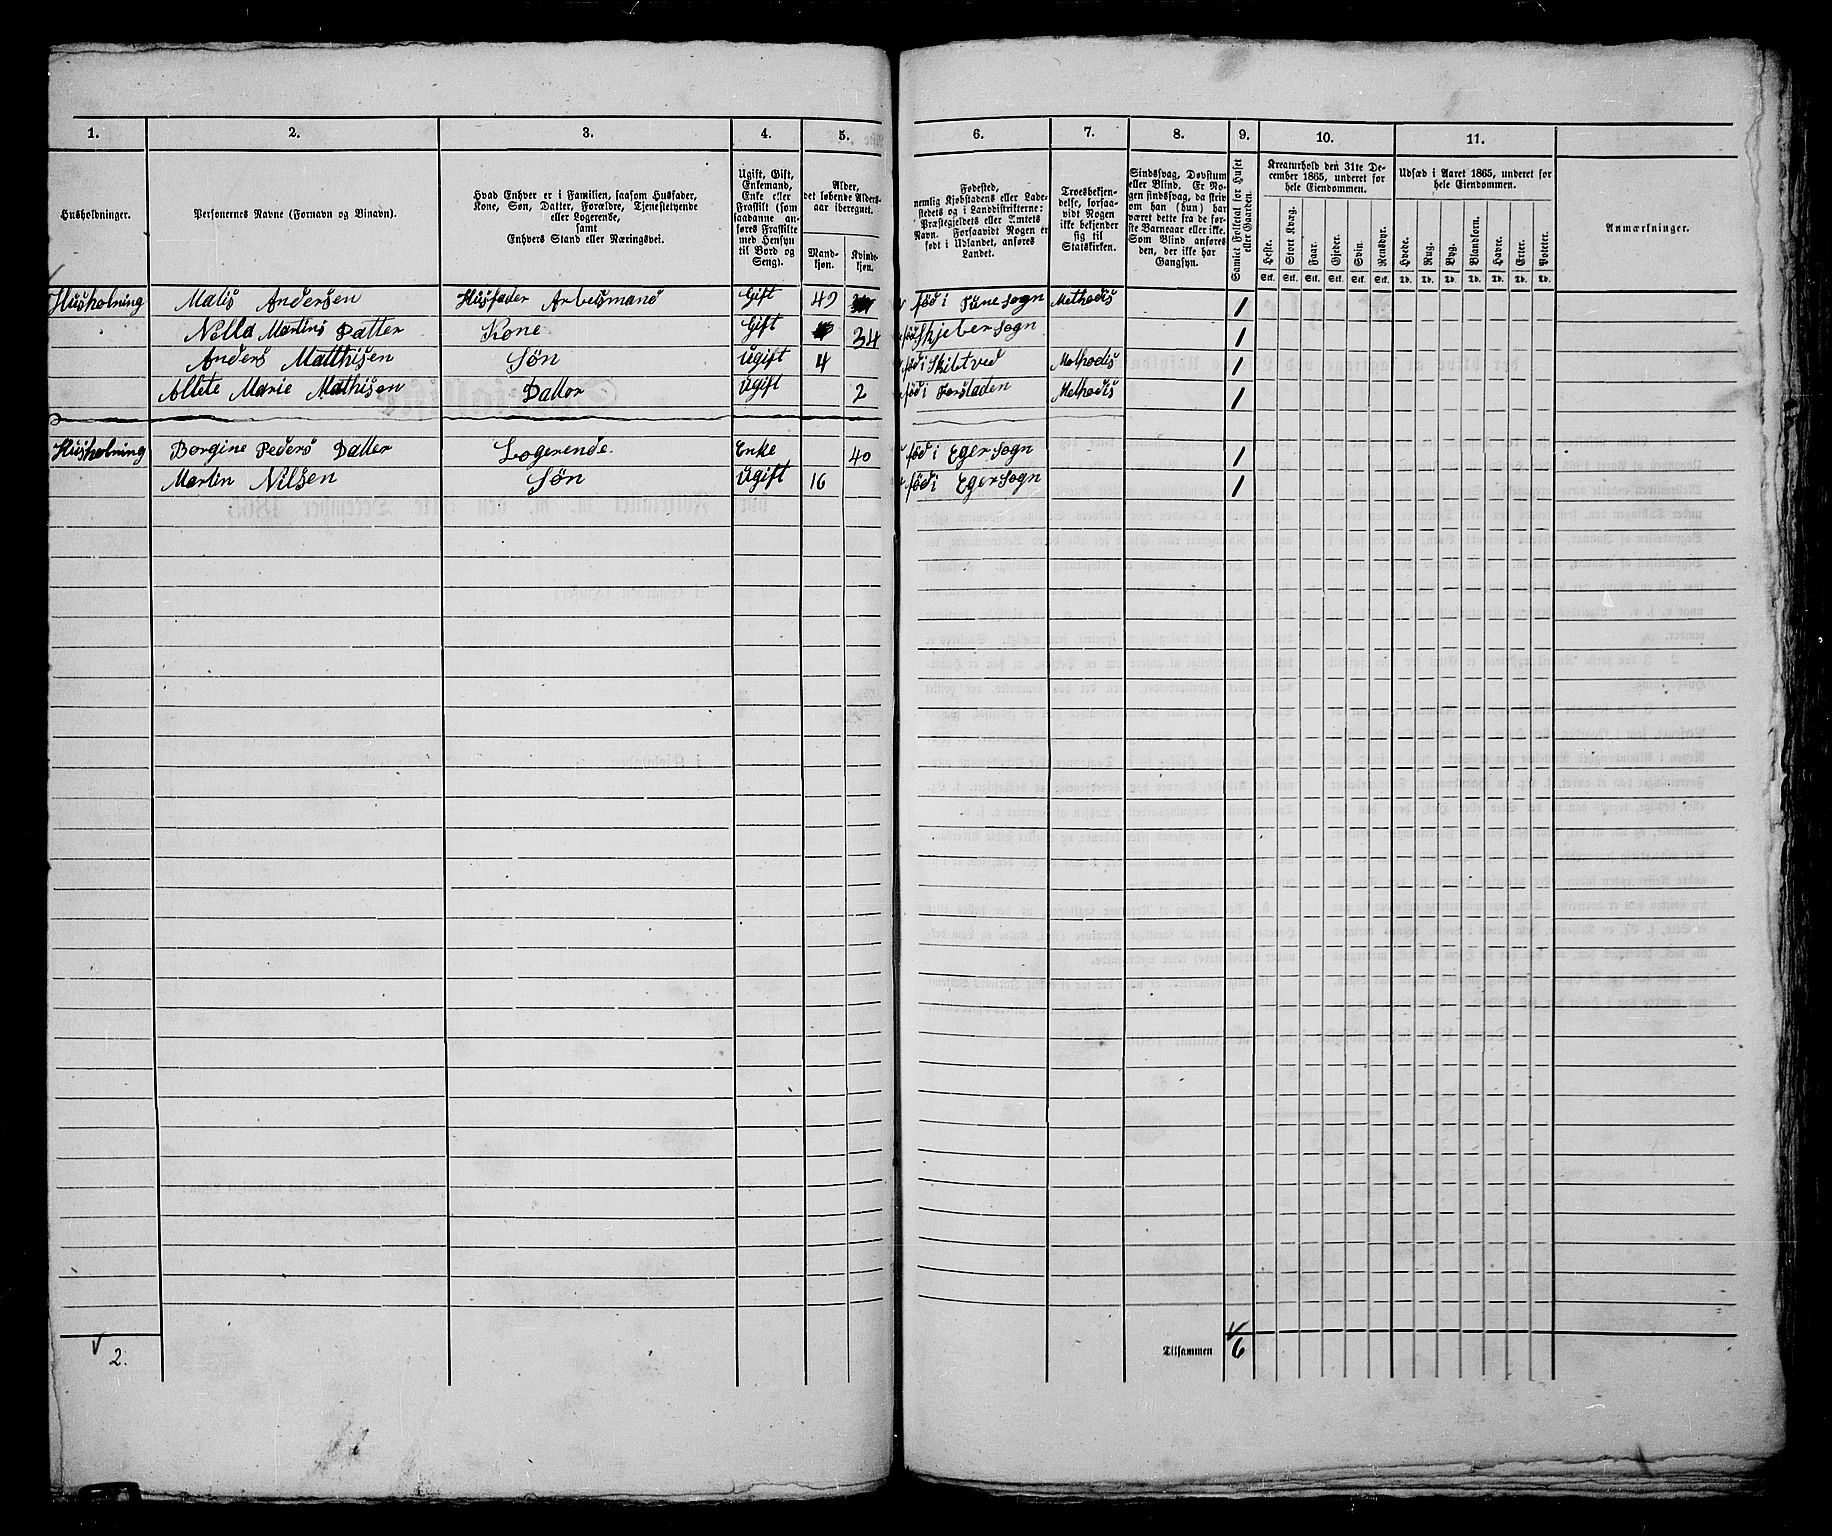 1. 2. 3. 4. 5. 6. 7. 8. 9. 10. 11.
Husholdninger.
Personernes Navne (Fornavn og Vinavn).
Hvad Enhver er i Familien, saasom Husfader,
Kone, Søn, Datter, Forældre, Tjenestetyende
eller Logerende,
samt
Enhvers Stand eller Næringsvei.
Ugift, Gift,
Enkemand,
Enke eller
Fraskilt (som
saadanne an-
føres Fraskilte
med Hensyn
til Bord og
Seng).
Alder,
det løbende Alders-
aar iberegnet.
Mand-
kjøn.
Kvinde-
kjøn.
Fødested,
nemlig Kjøbstadens eller Lade-
stedets og i Landdistrikterne:
Præstegjeldets eller Amtets
Navn. Forsaavidt Nogen er
født i Udlandet, anføres
Landet.
Troesbekjen-
delse, forsaa-
vidt Nogen
ikke bekjender
sig til
Statskirken.
Sindssvag, Døvstum
eller Blind. Er No-
gen sindssvag, da skriv
om han (hun) har
været dette fra de før-
ste Barneaar eller ikke.
Som Blind anføres
den, der ikke har
Gangsyn.
Samlet Folketal for Huset
eller Gaarden.
Kreaturhold den 31te De-
cember 1865, underet for
hele Eiendommen.
Heste. Stort Kvæg. Faar. Gjeder. Svin. Rensdyr.
Stk. Stk. Stk. Stk. Stk. Stk.
Udsæd i Aaret 1865, underet for
hele Eiendommen.
Hvede. Rug. Byg. Blandkorn. Havre. Erter. Poteter.
Td. Td. Td. Td. Td. Td. Td.
Anmærkninger.
Husholning Matis Andersen Husfader Arbesmand Gift 49 föd i Tune Sogn Methodis 1
Nella Martins Datter Kone Gift 34 föd Skjeber Sogn 1
Anders Matthisen Søn ugift 4 föd i Skibtved Methodis 1
Allete Marie Mathisen Datter ugift 2 föd i Forstaden Methodis 1
Husholning Borgine Peders Datter Logerende Enke 40 föd i Eger Sogn 1
Martin Nilsen Søn Ugift 16 föd i Eger Sogn 1
2. Tilsammen 6